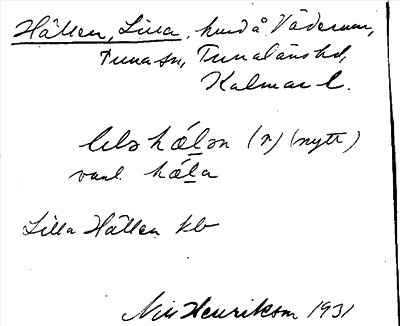 Hällen, Lilla, hmd å Väderum,
Tuna sn, Tunaläns hd,
Kalmar l.
lilə hǽlən (n) (nytt)
vanl. hǽla
Lilla Hällen kb
Nils Henrikson 1931